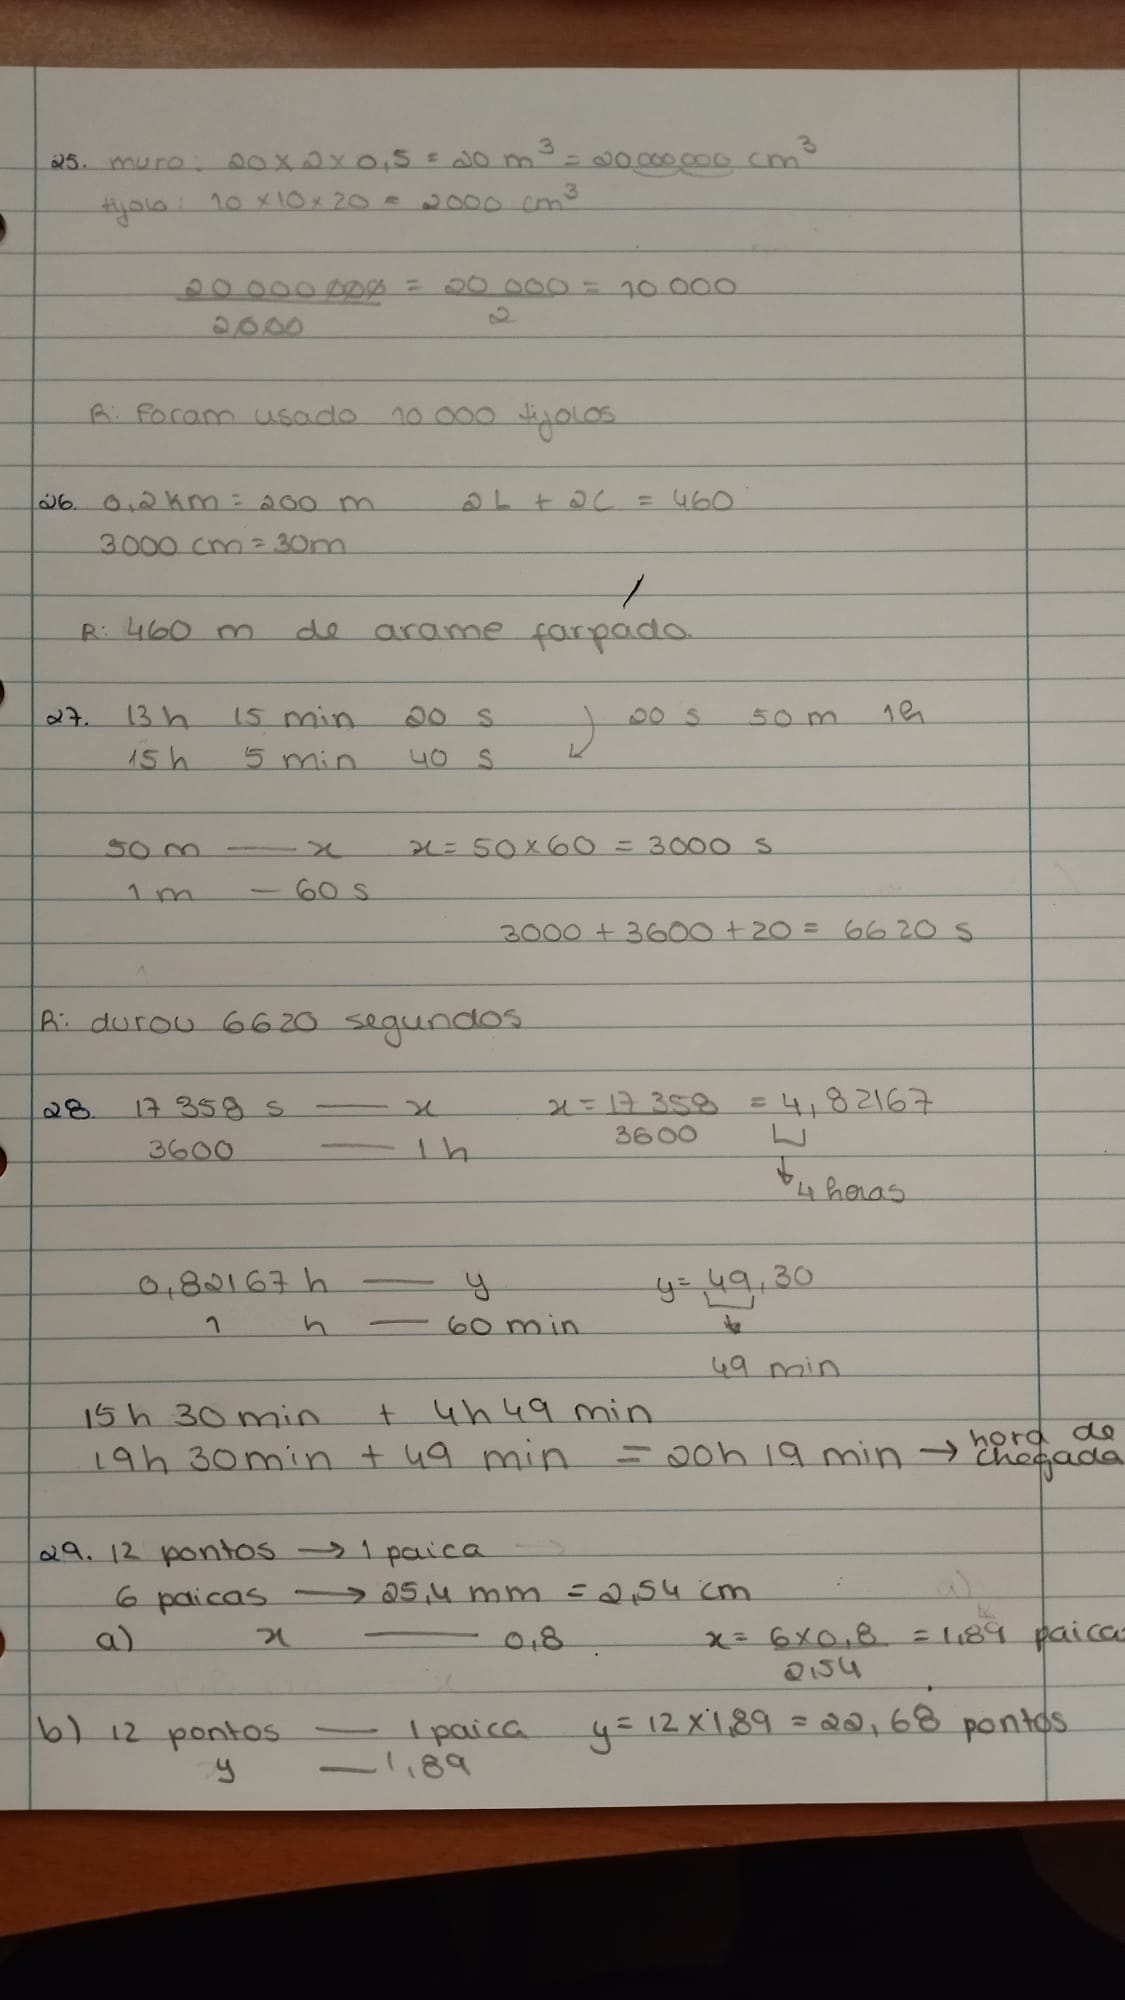 25. muro: 20 x 2 x 0,5 = 20 m³ = 20 000 000 cm³
tijolo: 10 x 10 x 20 = 2000 cm³
20 000 000 / 2000 = 20 000 / 2 = 10 000
R: Foram usado 10 000 tijolos
26. 0,2 km = 200 m 2L + 2C = 460
3000 cm = 30m
R: 460 m de arame farpado
27. 13h 15 min 20 s 20 s 50 m 1h
15h 5 min 40 s
50 m — x x = 50 x 60 = 3000 s
1 m — 60 s
3000 + 3600 + 20 = 6620 s
R: durou 6620 segundos
28. 17 358 s — x x = 17 358 / 3600 = 4,82167
3600 — 1 h
↓ 4 horas
0,82167 h — y y = 49,30
1 h — 60 min
49 min
15h 30 min + 4h 49 min
19h 30min + 49 min = 20h 19 min → hora de chegada
29. 12 pontos → 1 paica
6 paicas → 25,4 mm = 2,54 cm
a) x — 0,8 x = 6 x 0,8 / 2,54 = 1,89 paica
b) 12 pontos — 1 paica y = 12 x 1,89 = 22,68 pontos
y — 1,89